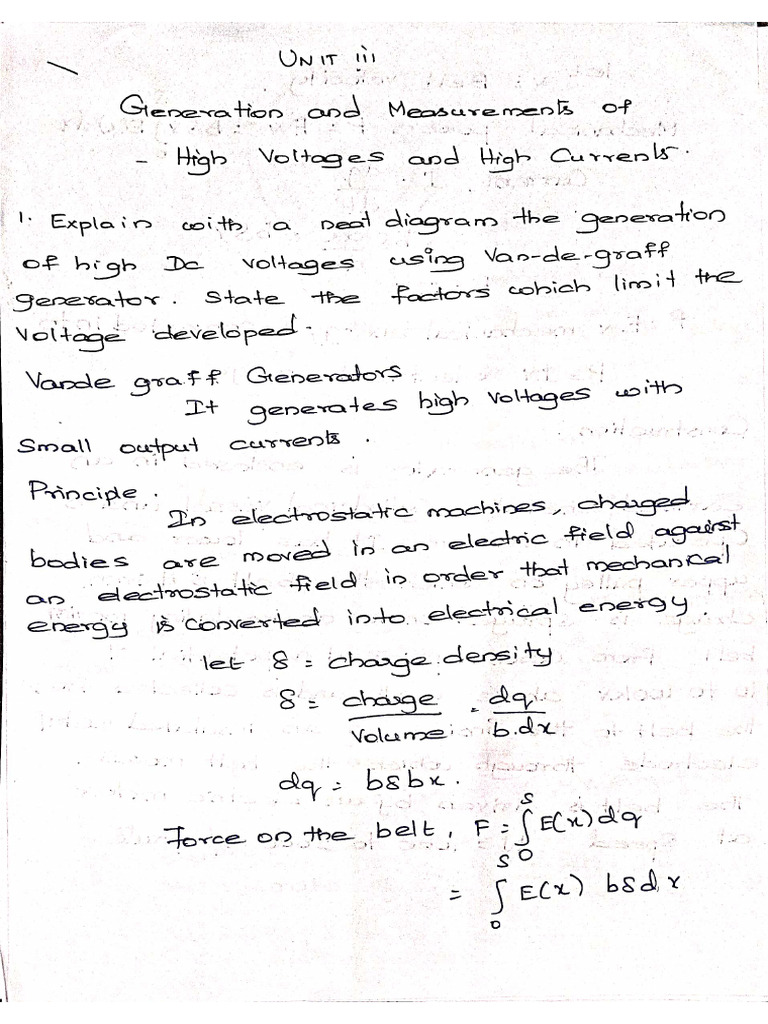 UNIT iii
Generation and Measurements of
- High Voltages and High Currents.
1. Explain with a neat diagram the generation
of high Dc voltages using Van-de-graff
generator. State the factors which limit the
voltage developed.
Vande graff Generators
It generates high voltages with
Small output currents.
Principle.
In electrostatic machines, charged
bodies are moved in an electric field against
an electrostatic field in order that mechanical
energy is converted into electrical energy.
let δ = charge density
δ = charge/Volume = dq/b.dx
dq = bδbx.
Force on the belt, F = ∫₀ˢ E(x) dq
= ∫₀ˢ E(x) bδdx